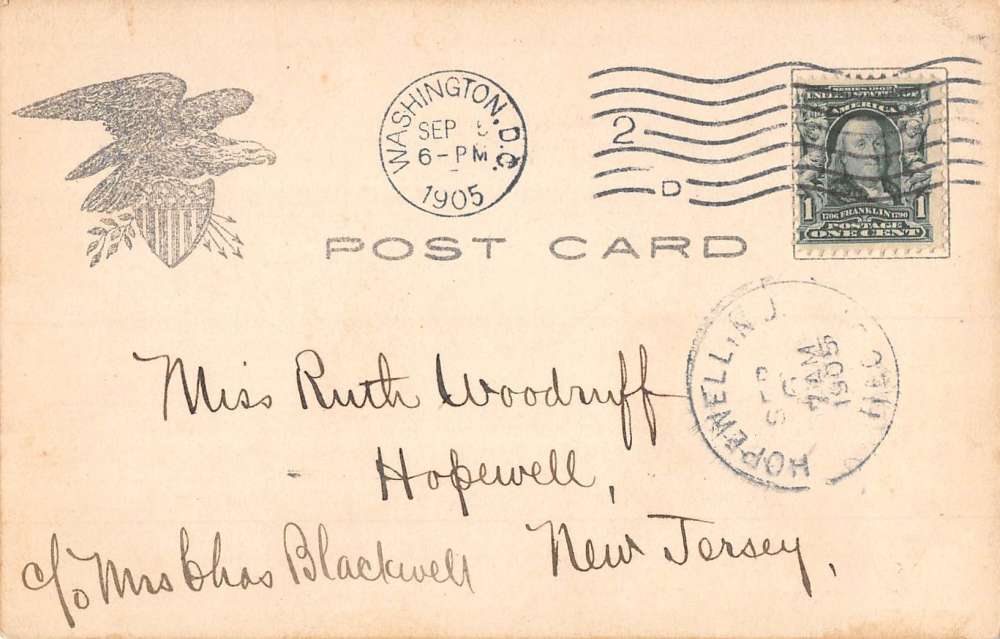 WASHINGTON, D.C.
SEP 5
6-PM
1905
2
D
SERIES 1902
UNITED STATES OF
AMERICA
1 1
1706 FRANKLIN 1790
POSTAGE
ONE CENT
POST CARD
HOPEWELL, N.J.
SEP
6
7 AM
1905
REC'D
Miss Ruth Woodruff
Hopewell,
New Jersey,
c/o Mrs Chas Blackwell